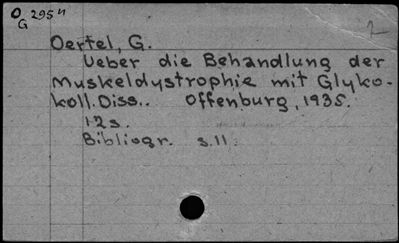 O 295 n
G
2
Oertel, G.
Ueber die Behandlung der
Muskeldystrophie mit Glyko-
koll. Diss.. Offenburg, 1935.
12s.
Bibliogr. s.11.